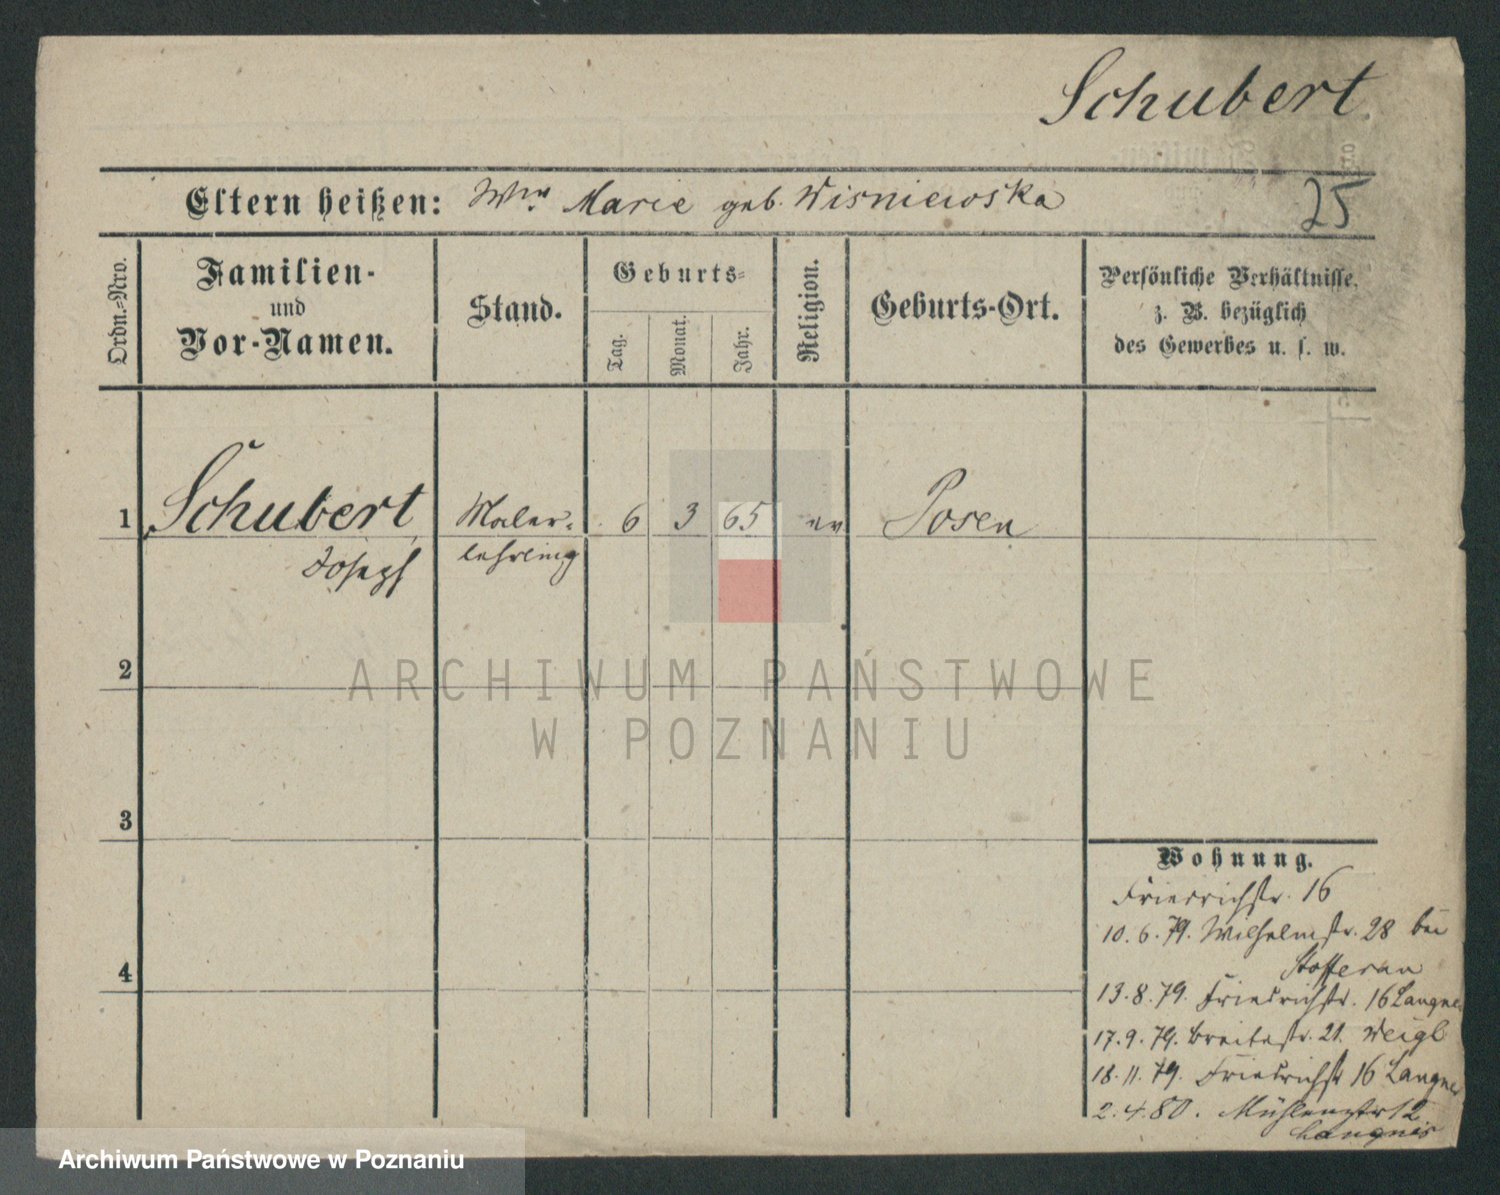 Schubert
Eltern heißen: Wwe Marie geb. Wisniewska
25
Ordn.-Nro.
Familien-
und
Vor-Namen.
Stand.
Geburts-
Tag.
Monat.
Jahr.
Religion.
Geburts-Ort.
Persönliche Verhältnisse,
z. B. bezüglich
des Gewerbes u. s. w.
1 Schubert Maler- 6 3 65 ev Posen
Joseph lehrling
2
3
4
Wohnung.
Friedrichstr. 16
10.6.79. Wilhelmstr. 28 bei
13.8.79. Friedrichstr. 16 Langner
17.9.79. Breitestr. 21. Weigl
18.11.79. Friedrichstr 16 Langner
2.4.80. Mühlenstr 12
ARCHIWUM PAŃSTWOWE
W POZNANIU
Archiwum Państwowe w Poznaniu